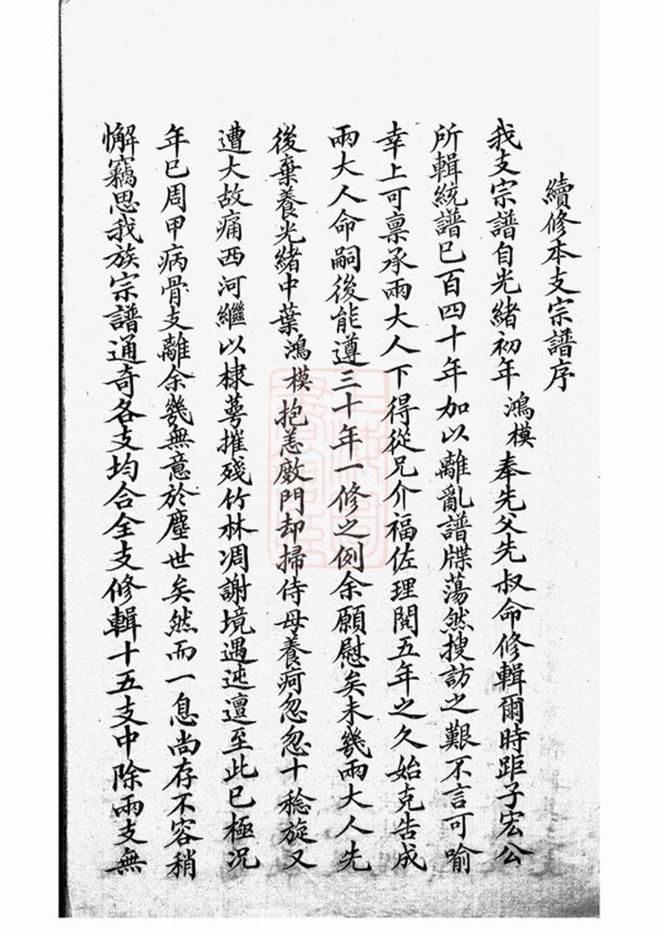 續修本支宗譜序
我支宗譜自光緒初年鴻模奉先父先叔命修輯爾時距子宏公
所輯統譜已百四十年加以離亂譜牒蕩然搜訪之艱不言可喻
幸上可稟承兩大人下得從兄介福佐理閱五年之久始克告成
兩大人命嗣後能遵三十年一修之例余願慰矣未幾兩大人先
後棄養光緒中葉鴻模抱恙廠門却掃侍母養疴忽忽十稔旋又
遭大故痛西河繼以棣萼摧殘竹林凋謝境遇迍邅至此已極況
年已周甲病骨支離余幾無意於塵世矣然而一息尚存不容稍
懈竊思我族宗譜通奇各支均合全支修輯十五支中除兩支無